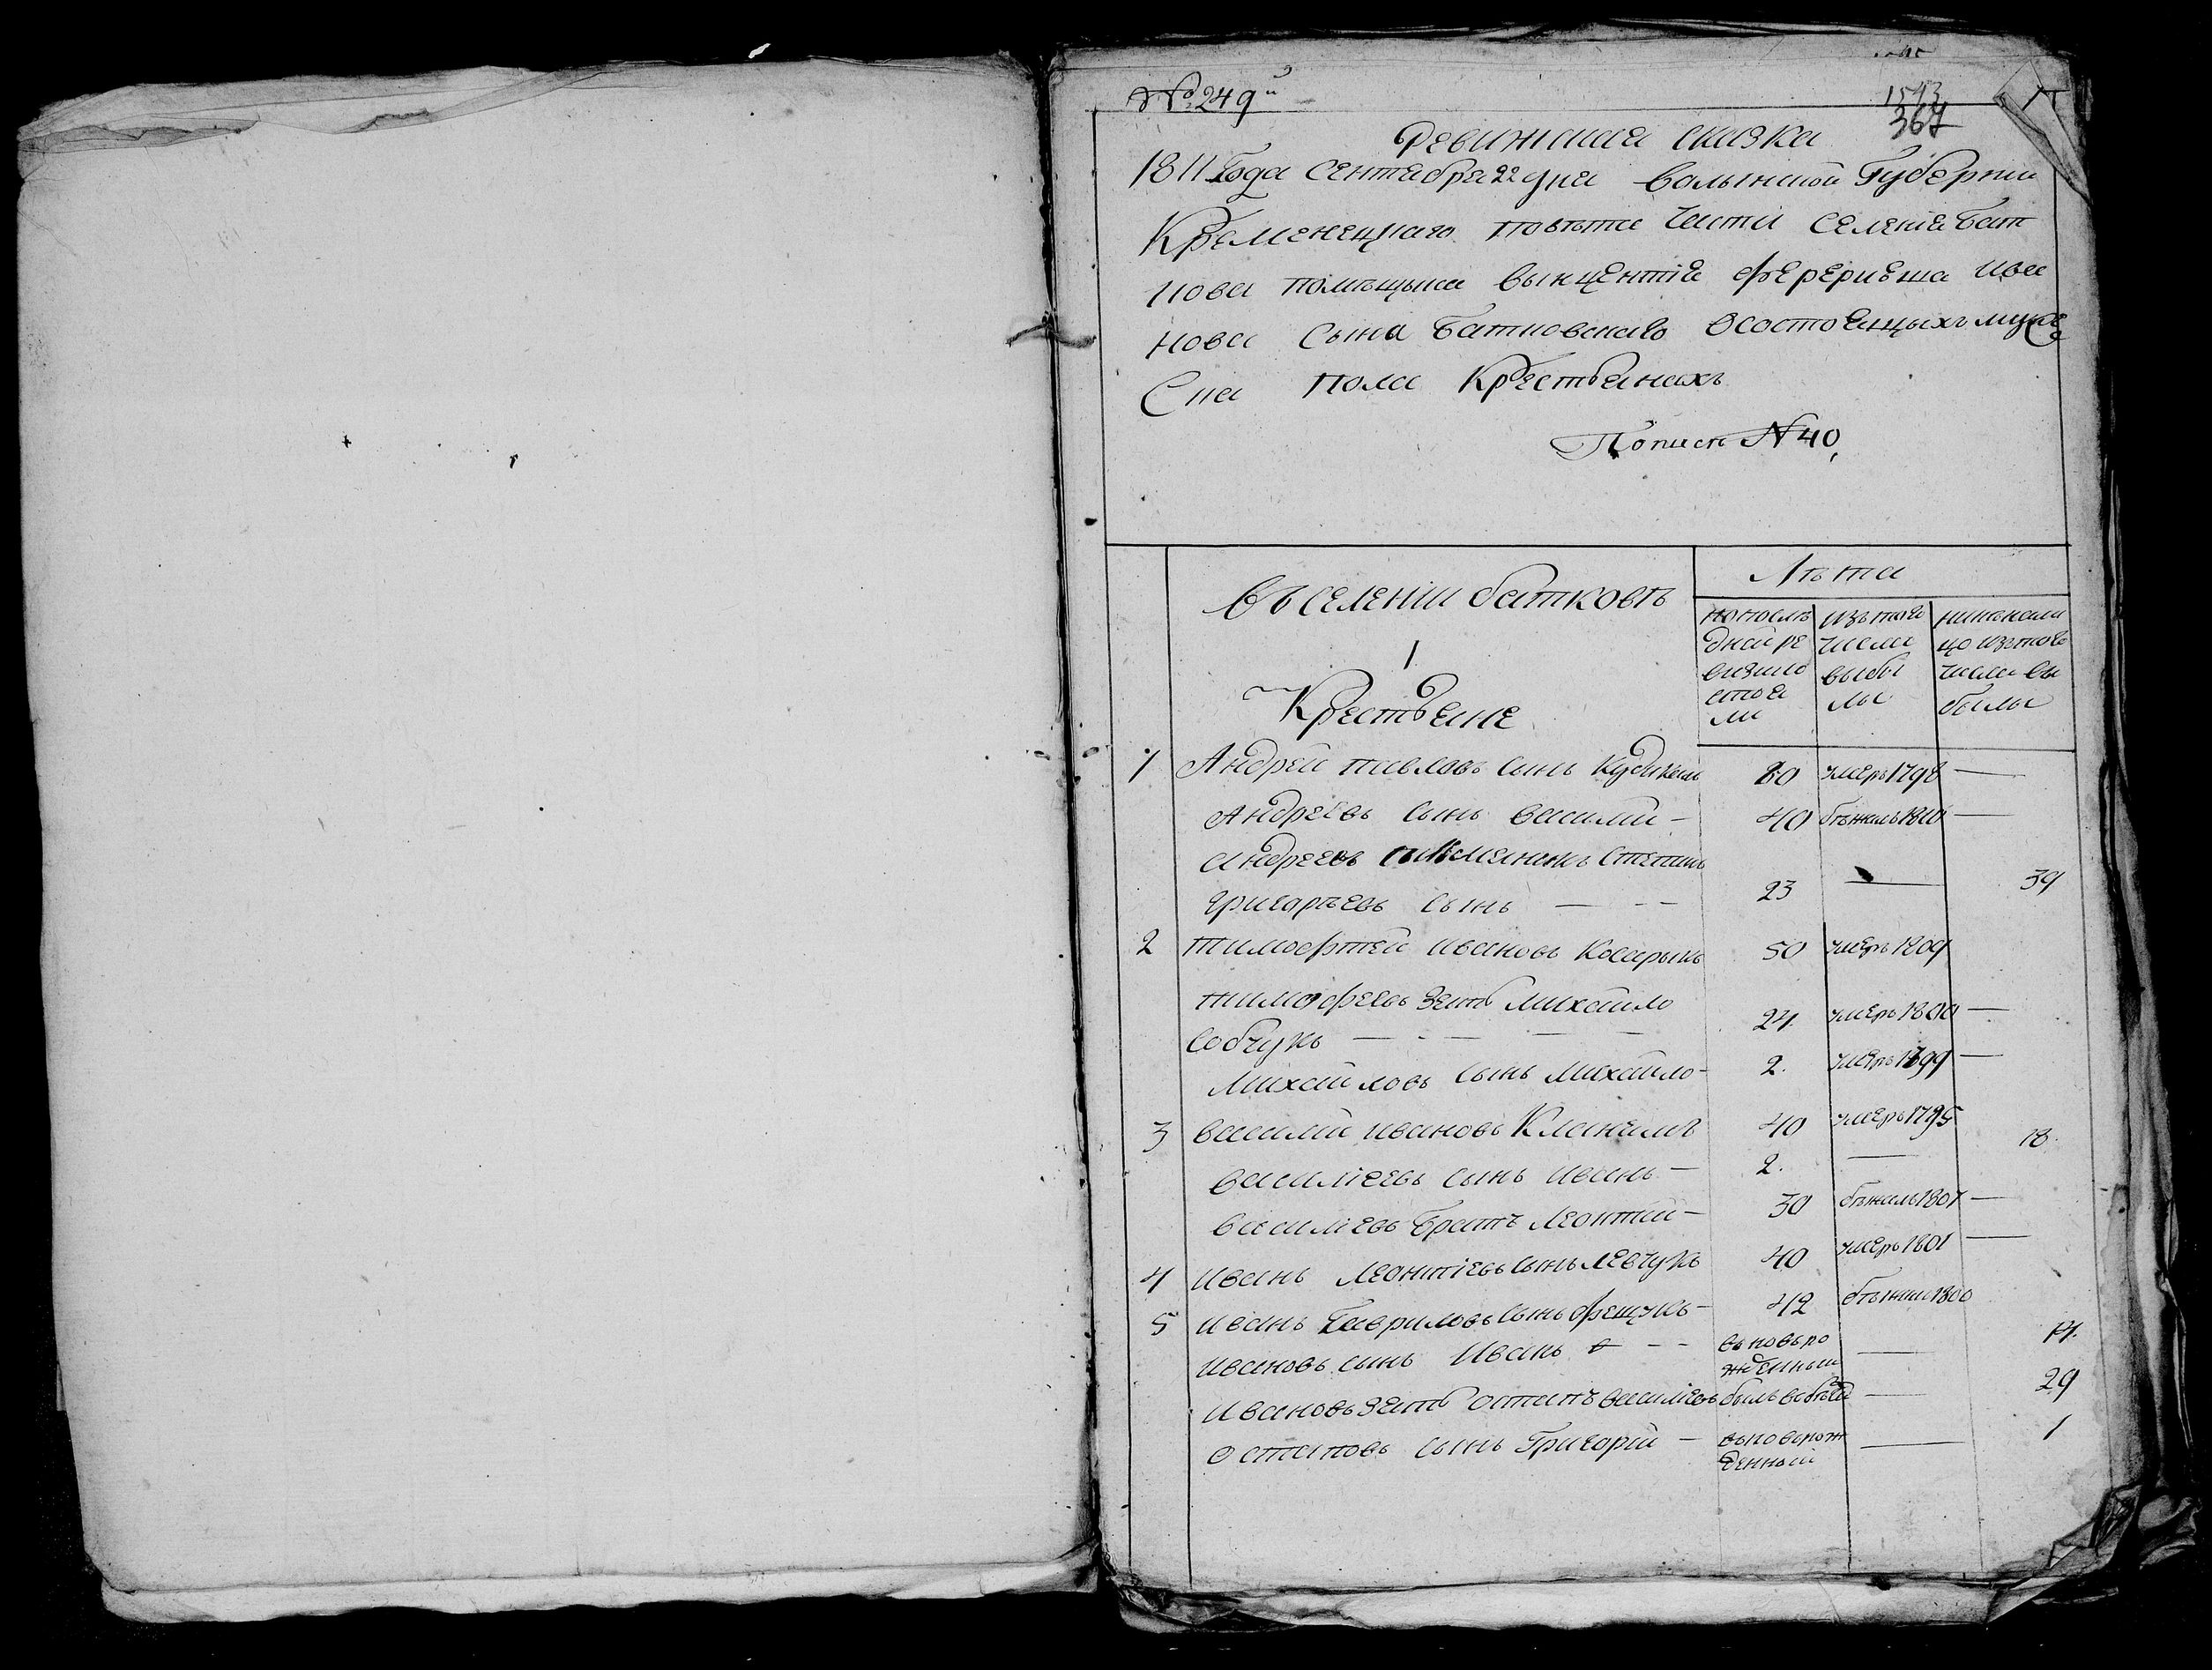 № 249й
1543
367
Ревижская сказка
1811 Года Сентября 22 дня Волынской Губернии
Кременецкаго повѣта Части Селенія Бат
кова помѣщыка Вынцентія Ива
нова Сына Батковскаго Осостоящыхъ муже
Ска пола Крестьянахъ
Попись N 40
въ селеніи батковѣ
1
Крестьяне
Лѣта
попослѣ
дней ре
визіи со
стоя
ли
изътого
числа
выбы
лы
нинѣнали
цо изътого
числа вы
былы
1 Андрей павловъ сынъ 80 умеръ 1798 —
Андреевъ сынъ василий — 40 бѣжалъ 1810 —
Андреевъ племянникъ Степанъ
григоръевъ сынъ — 23 — 39
2 тимофтей ивановъ Косарыкъ 50 умеръ 1809
тимофеевъ зять михайло
Собчукъ — 24 умеръ 1800 —
михайловъ сынъ михайло — 2. умеръ 1799 —
3 василий ивановъ 40 умеръ 1795
василіевъ сынъ иванъ — 2. — 18.
василіевъ братъ леонтий — 30 бѣжалъ 1807 —
4 иванъ леонтіевъ сынъ левчукъ 40 умеръ 1801 —
5 иванъ Гавриловъ сынъ фещукъ — 42 бѣжалъ 1800
ивановъ сынъ Иванъ — вновьро
жденный — 14.
ивановъ зять остапъ василіевъ былъ вбѣгах — 29
остаповъ сынъ Григорій — вьноврож
денный — 1